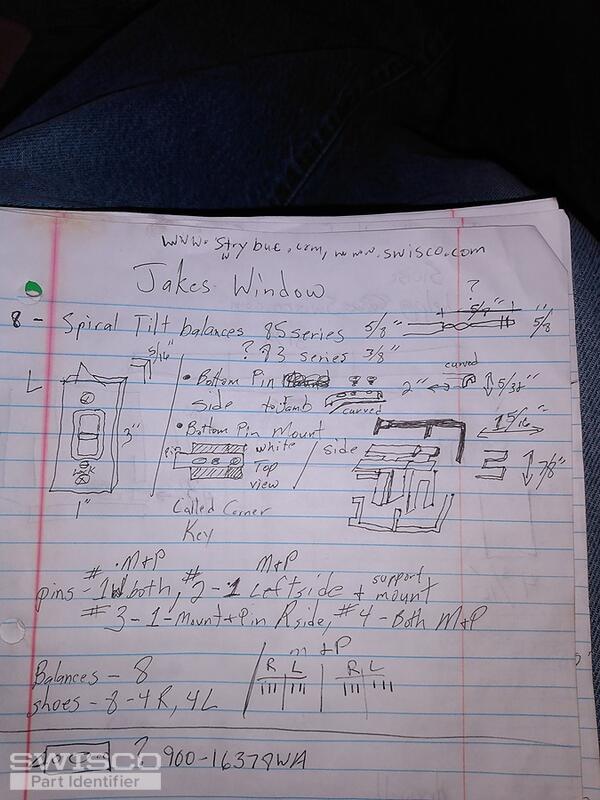 www.strybuc.com, www.swisco.com
Jakes Window
?
8 - Spiral Tilt balances 85 series 5/8" 5/8"
? 93 series 3/8"
5/16"
L
• Bottom Pin
side to Jamb
curved
2"
curved
5/32"
3"
1"
• Bottom Pin Mount
pin white
Top
view
side
15/16"
7/8"
Called Corner
Key
M+P M+P
pins - #1 both, #2-1 Leftside + support mount
#3-1-Mount+pin Rside, #4-Both M+P
Balances - 8
shoes - 8 - 4R, 4L
M+P
R L R L
? 900-16378WA
SWISCO
Part Identifier